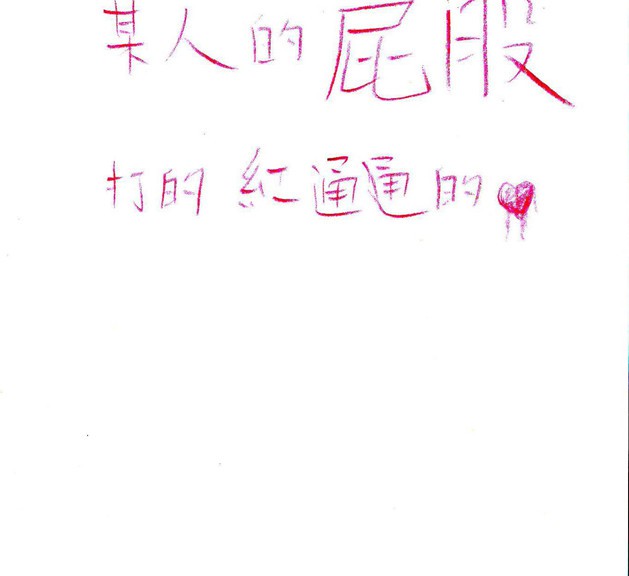 某人的屁股
打的紅通通的